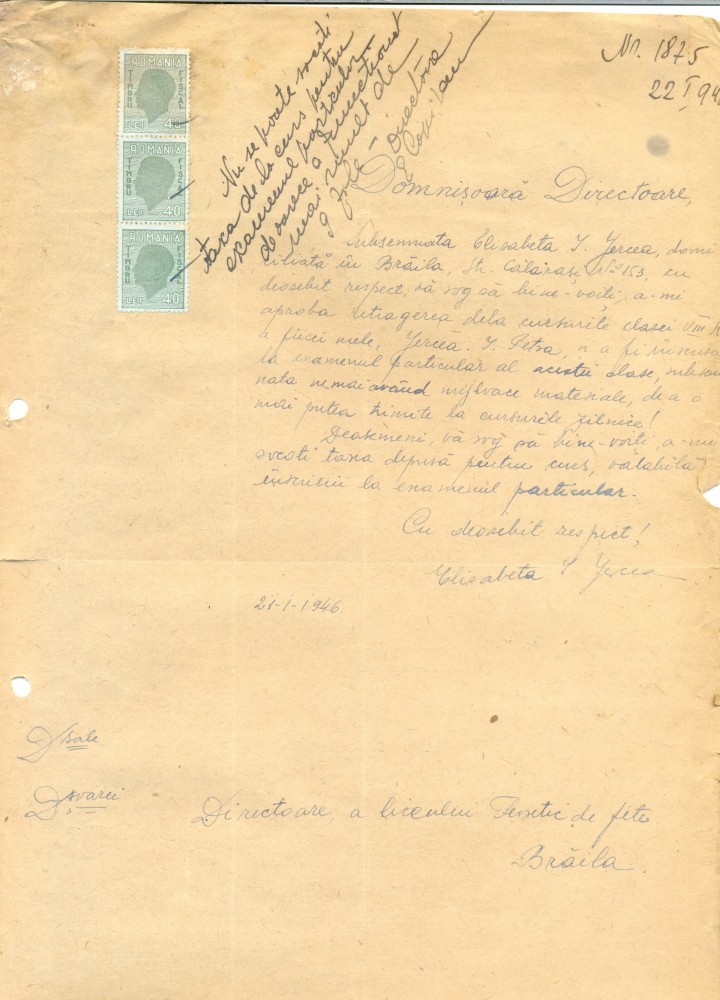 ROMANIA
TIMBRU
FISCAL
LEI 40
ROMANIA
TIMBRU
FISCAL
LEI 40
ROMANIA
TIMBRU
FISCAL
LEI 40
Nu se poate socoti
taxa de la curs pentru
examenul particular
deoarece a funcționat
mai mult de
9 zile - Directoare
Nr. 1875
22 I 94
Domnișoară Directoare,
Subsemnata Elisabeta I. Jercea, domi
ciliată în Brăila, Str. Călărași No 153, cu
deosebit respect, vă rog să bine-voiți, a-mi
aproba retragerea dela cursurile clasei VIII
a fiicei mele, Jercea I. Petra, a fi înscrisă
la examenul particular al acestei clase, subsem
nata nemai având mijloace materiale, de a o
mai putea trimite la cursurile zilnice!
Deasemeni, vă rog să bine-voiți, a-mi
socoti taxa depusă pentru curs, valabilă
înscrierii la examenul particular.
Cu deosebit respect!
Elisabeta I. Jercea
21-1-1946.
D Sale
D, șoarei
Directoare, a liceului de fete
Brăila.